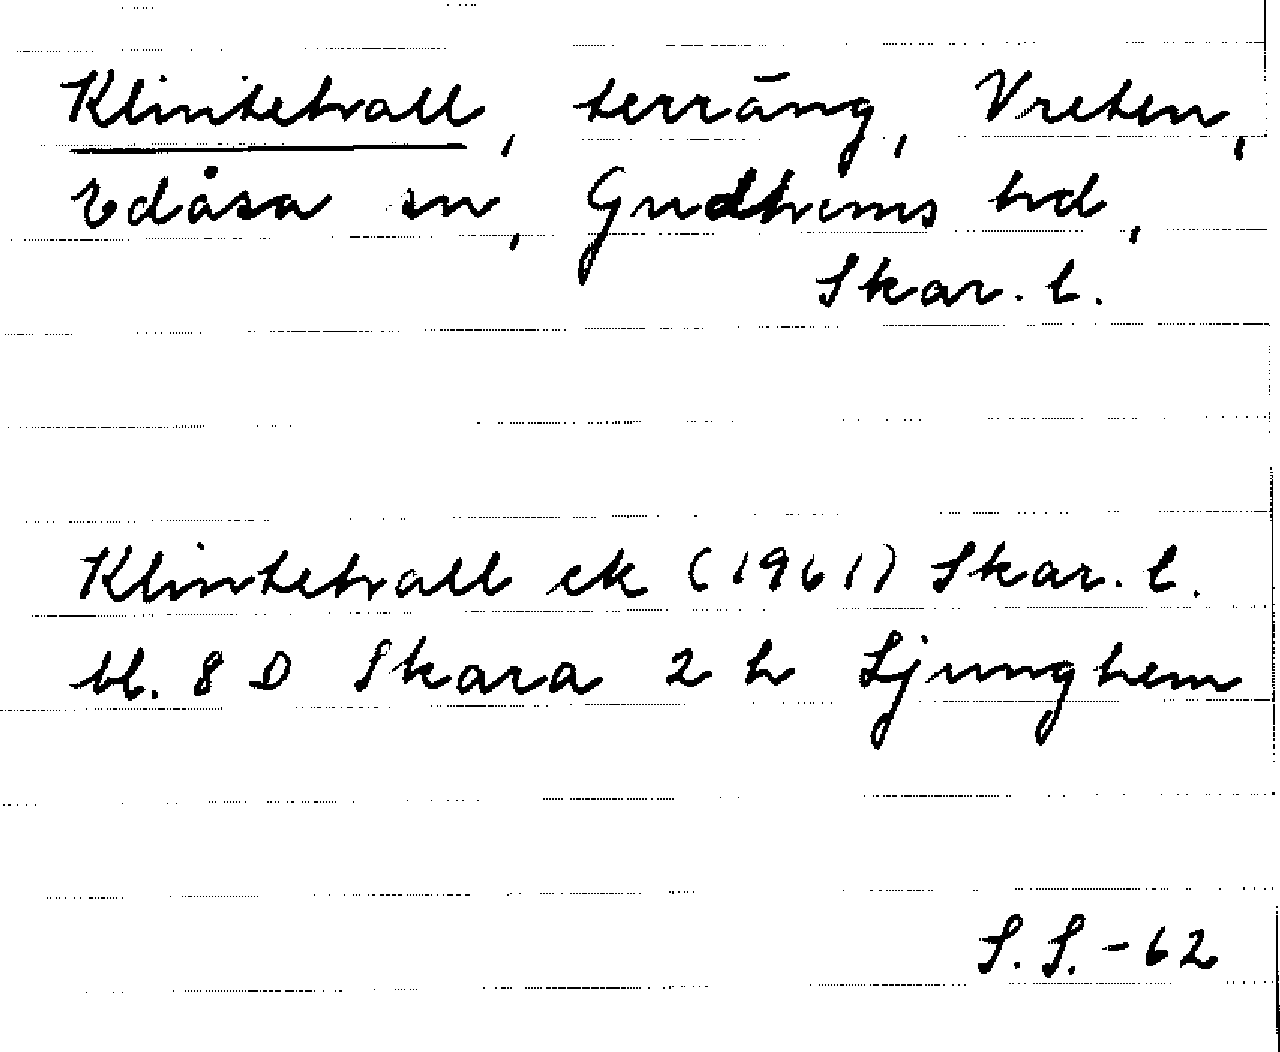 Klintetvall, terräng, Vreten,
Edåsa sn, Gudhems hd,
Skar. l.
Klintetvall ek (1961) Skar. l.
bl. 8 D Skara 2 h Ljunghem
S. S. - 62